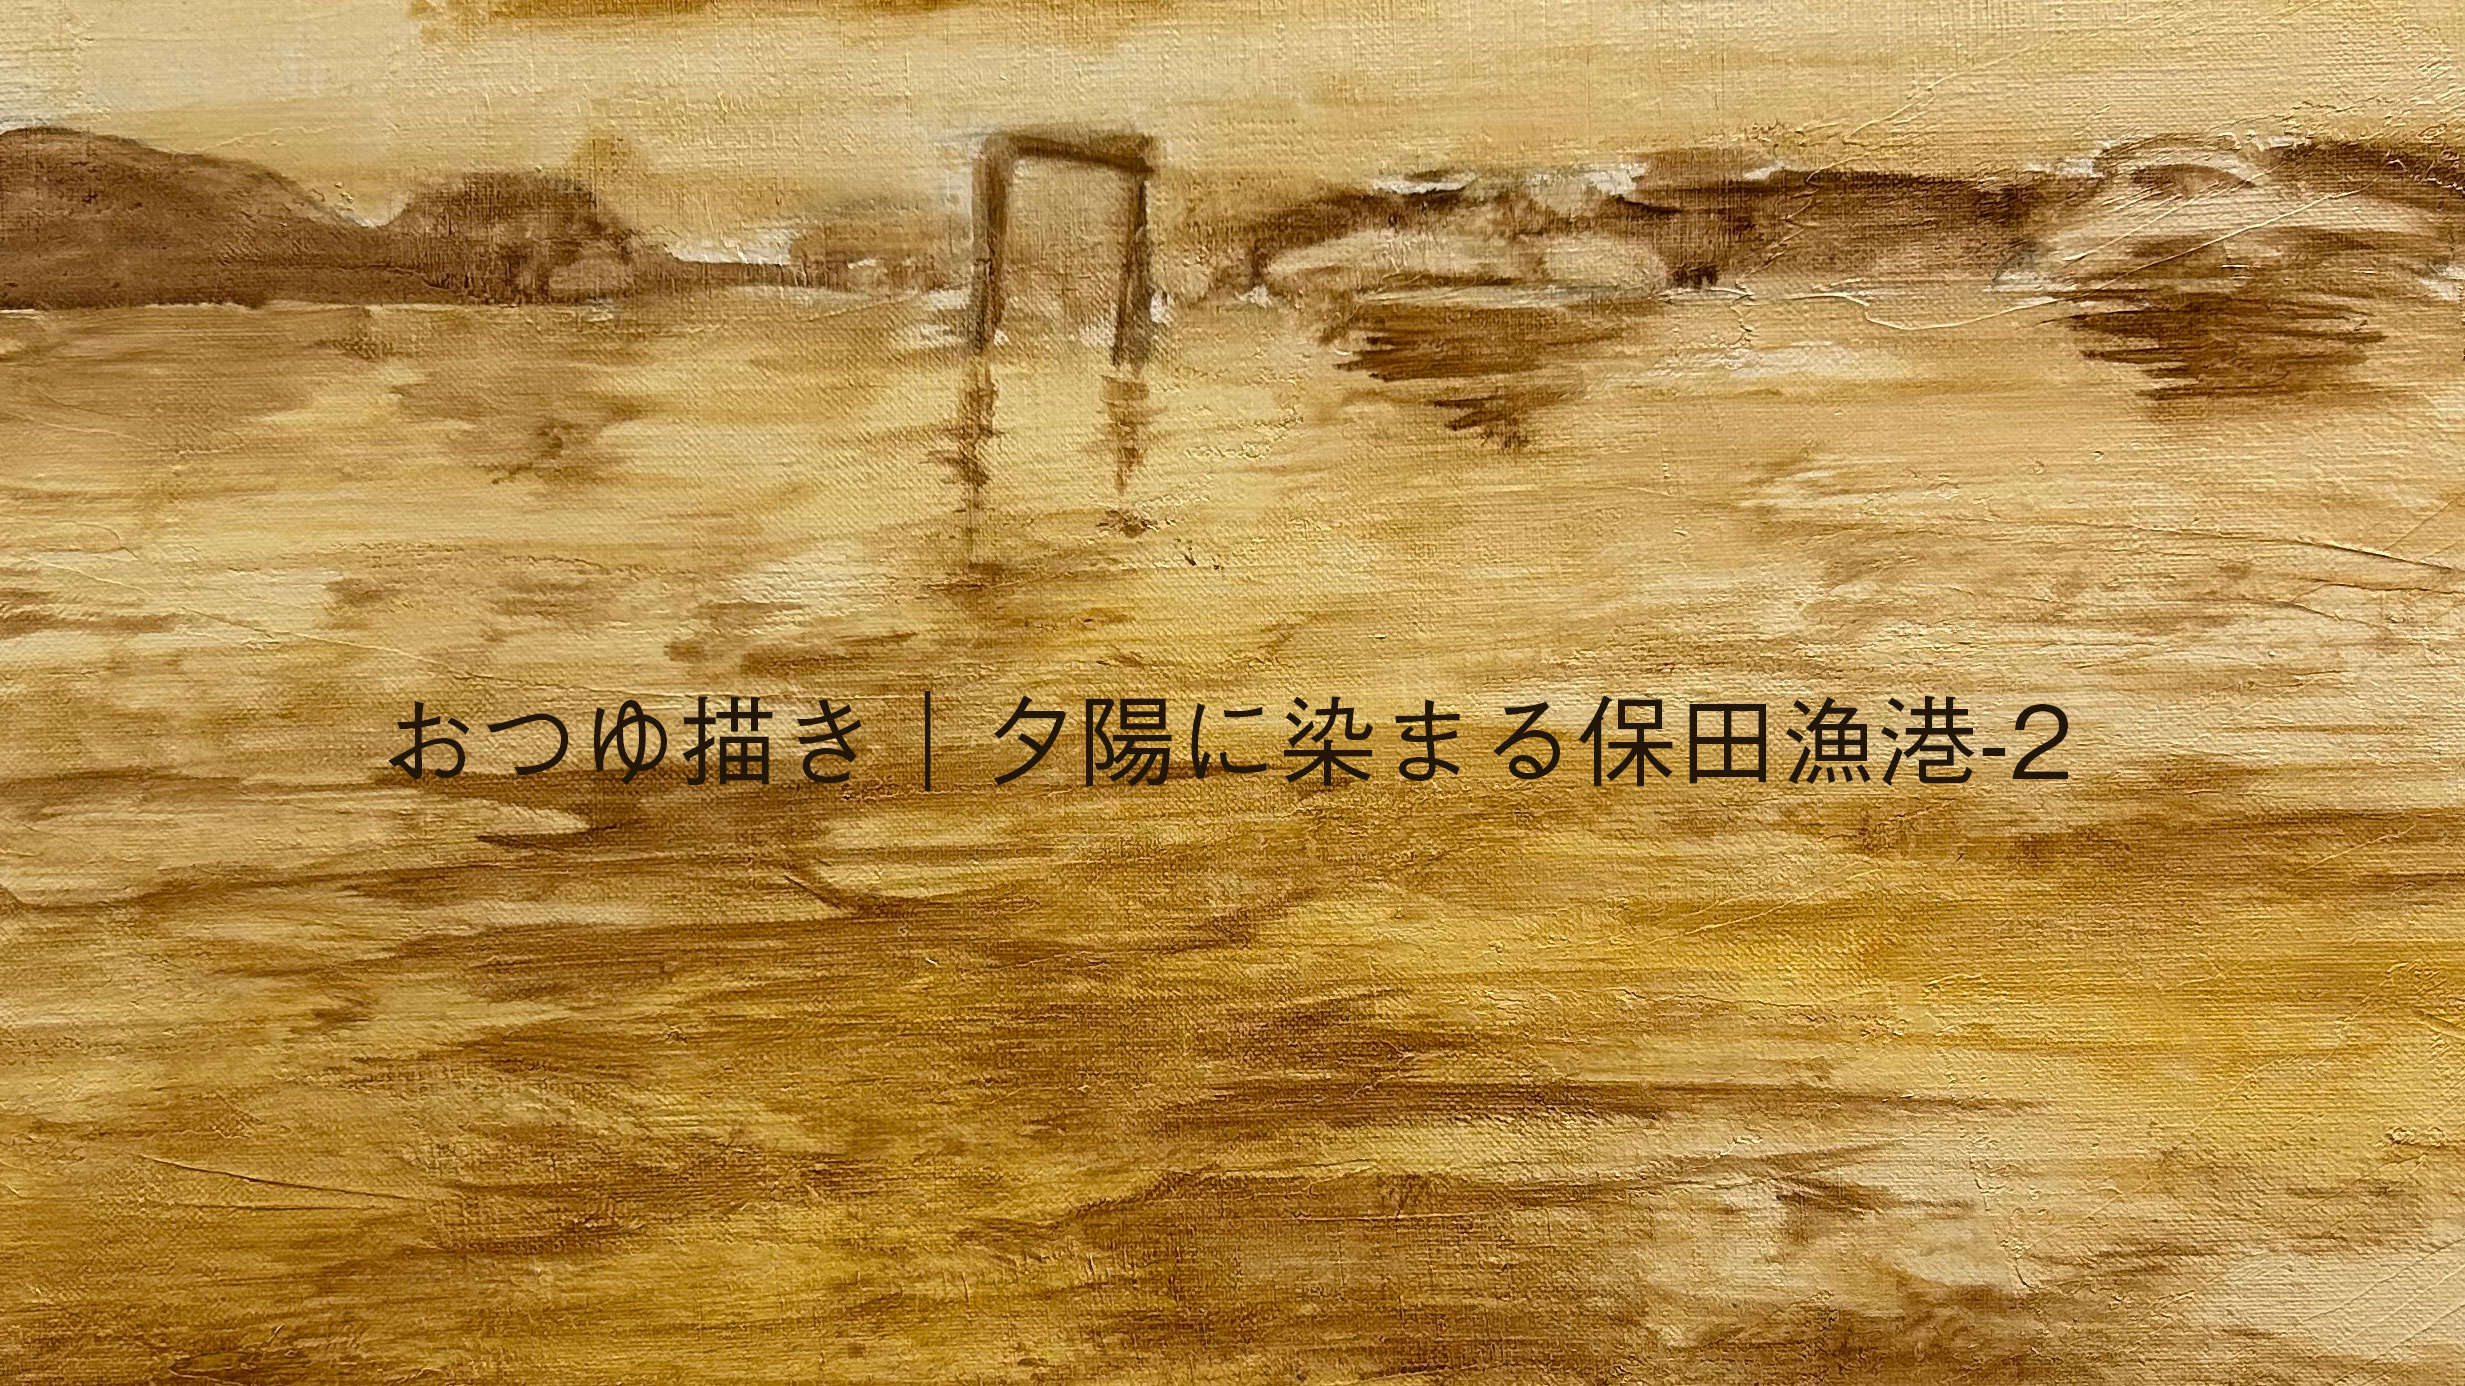 おつゆ描き｜夕陽に染まる保田漁港-2